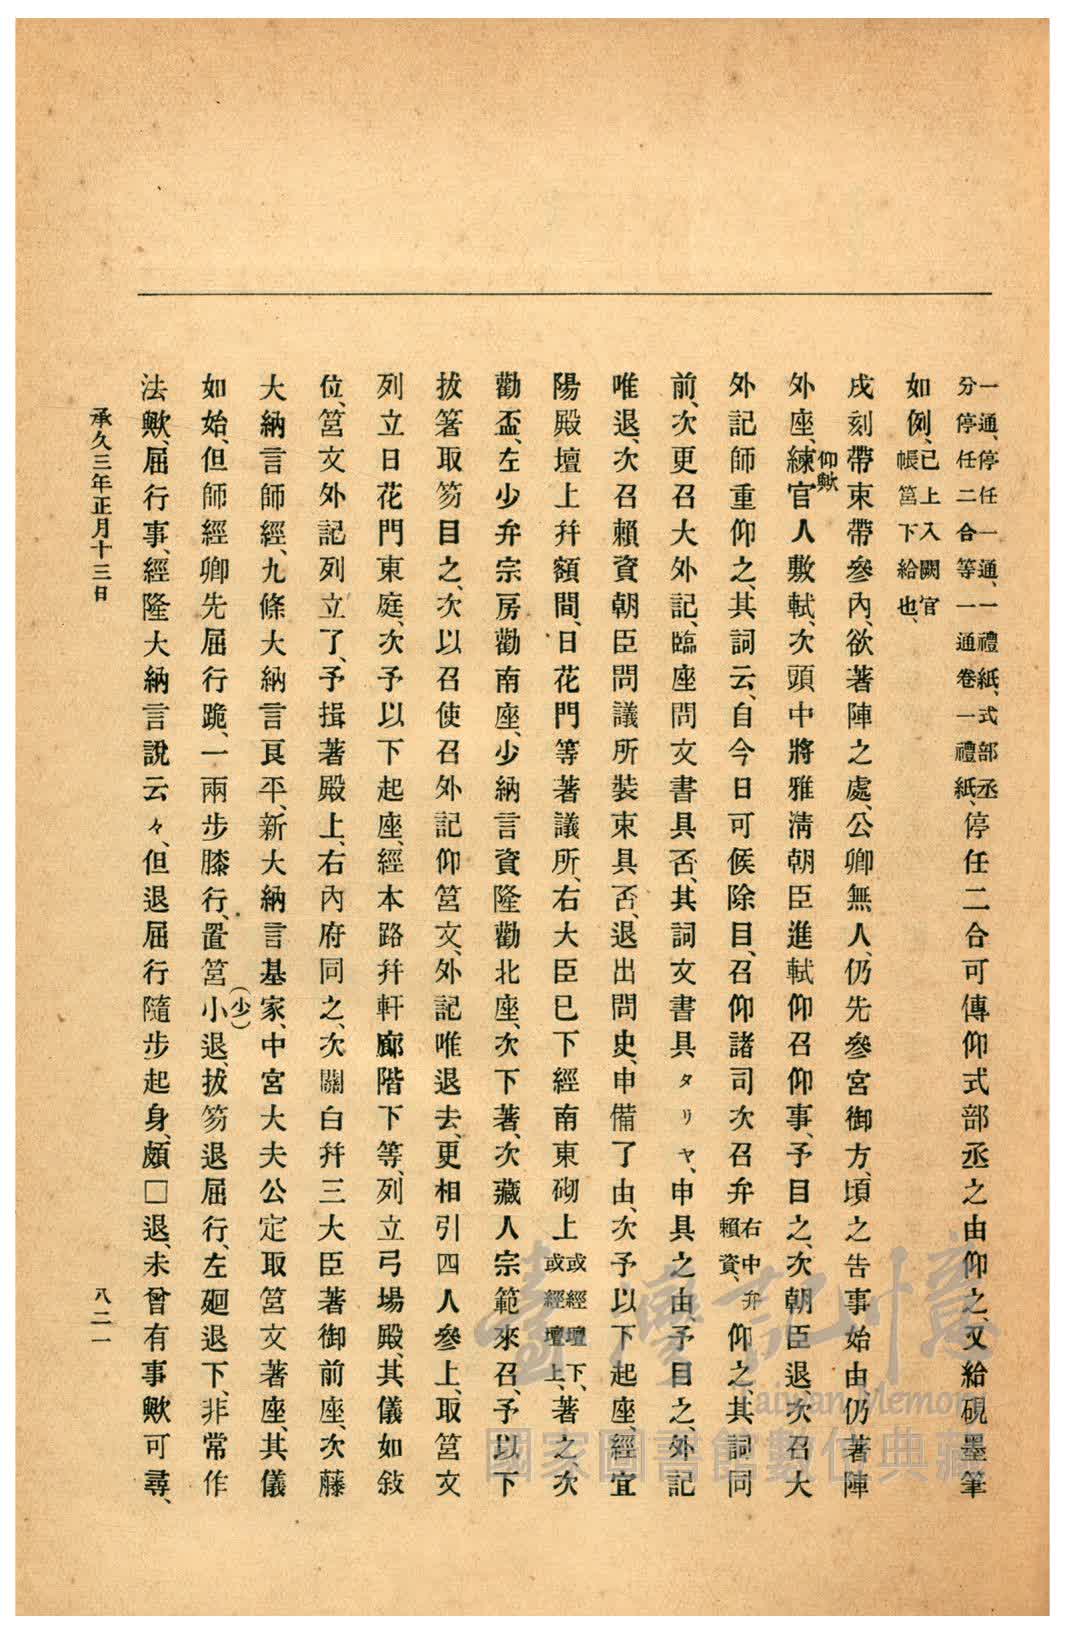 一通、停任一通、一禮紙、式部丞
分停任二合等一通卷一禮紙、停任二合可傳仰式部丞之由仰之、又給硯墨筆
如例、已上入闕官
帳筥下給也、
戌刻帶束帶參內、欲著陣之處、公卿無人、仍先參宮御方、頃之告事始由仍著陣
外座、練官人敷軾、次頭中將雅淸朝臣進軾仰召仰事、予目之、次朝臣退、次召大
仰歟
外記師重仰之、其詞云、自今日可候除目、召仰諸司次召弁右中弁賴資、仰之、其詞同
前、次更召大外記、臨座問文書具否、其詞文書具タリヤ、申具之由、予目之、外記
唯退、次召賴資朝臣問議所裝束具否、退出問史、申備了由、次予以下起座、經宜
陽殿壇上幷額間、日花門等著議所、右大臣已下經南東砌上或經壇下、或經壇上、著之、次
勸盃、左少弁宗房勸南座、少納言資隆勸北座、次下著、次藏人宗範來召、予以下
拔箸取笏目之、次以召使召外記仰筥文、外記唯退去、更相引四人參上、取筥文
列立日花門東庭、次予以下起座、經本路幷軒廊階下等、列立弓場殿、其儀如敍
位、筥文外記列立了、予揖著殿上、右內府同之、次關白幷三大臣著御前座、次藤
大納言師經、九條大納言良平、新大納言基家、中宮大夫公定取筥文著座、其儀
如始、但師經卿先屈行跪、一兩步膝行、置筥小退、拔笏退屈行、左廻退下、非常作
（少）
法歟、屈行事、經隆大納言說云々、但退屈行隨步起身、頗□退、未曾有事歟可尋、
承久三年正月十三日
八二一
臺灣記憶
Taiwan Memory
國家圖書館數位典藏